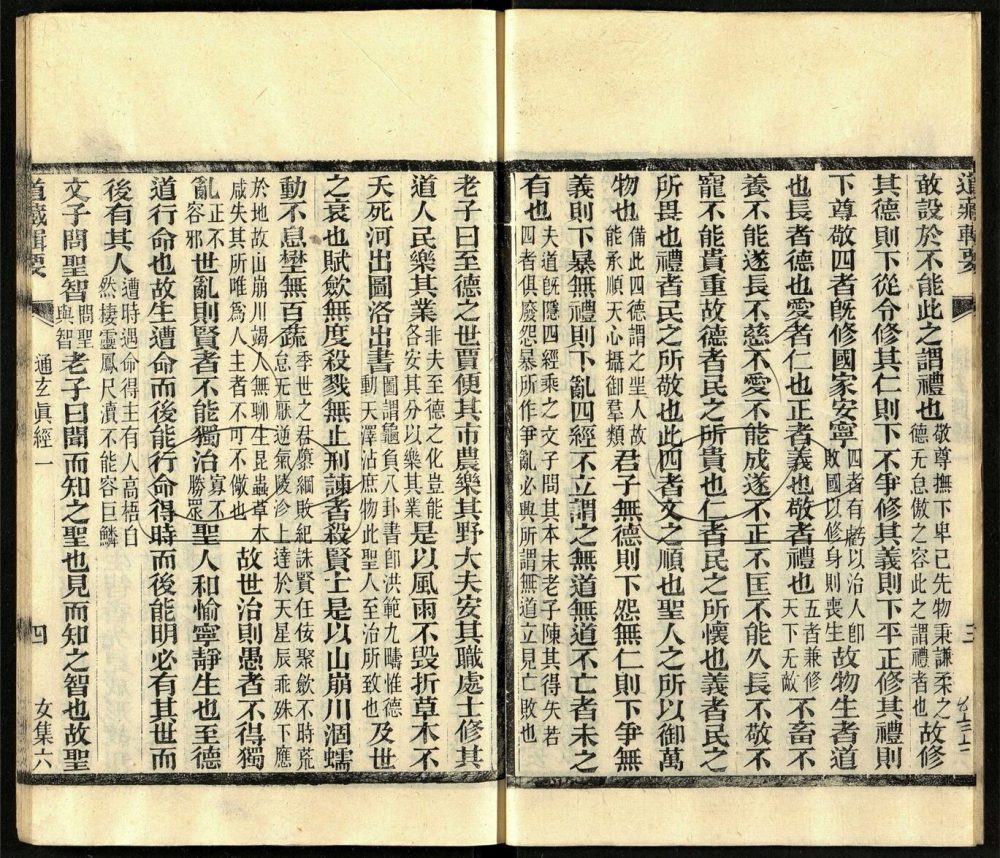 道藏輯要
三
敢設於不能此之謂禮也敬尊撫下卑己先物秉謙柔之德无怠傲之容此之謂禮者也故修
其德則下從令修其仁則下不爭修其義則下平正修其禮則
下尊敬四者旣修國家安寧四者有虧以治人卽敗國以修身則喪生故物生者道
也長者德也愛者仁也正者義也敬者禮也五者兼修天下无敵不畜不
養不能遂長不慈不愛不能成遂不正不匡不能久長不敬不
寵不能貴重故德者民之所貴也仁者民之所懷也義者民之
所畏也禮者民之所敬也此四者文之順也聖人之所以御萬
物也備此四德謂之聖人故能承順天心攝御羣類君子無德則下怨無仁則下爭無
義則下暴無禮則下亂四經不立謂之無道無道不亡者未之
有也夫道旣隱四經乘之文子問其本末老子陳其得失若四者俱廢怨暴所作爭亂必興所謂無道立見亡敗也
老子曰至德之世賈便其市農樂其野大夫安其職處士修其
道人民樂其業非夫至德之化豈能各安其分以樂其業是以風雨不毀折草木不
夭死河出圖洛出書圖謂龜負八卦書卽洪範九疇惟德動天澤沾庶物此聖人至治所致也及世
之衰也賦斂無度殺戮無止刑諫者殺賢士是以山崩川涸蠕
動不息壄無百蔬季世之君隳綱敗紀誅賢任佞聚斂不時荒怠无厭逆氣陵沴上達於天星辰乖殊下應
於地故山崩川竭人無聊生昆蟲草木咸失其所唯爲人主者不可不儆也故世治則愚者不得獨
亂正不容邪世亂則賢者不能獨治寡不勝衆聖人和愉寧靜生也至德
道行命也故生遭命而後能行命得時而後能明必有其世而
後有其人遭時遇命得主有人高梧白然棲靈鳳尺瀆不能容巨鱗
文子問聖智問聖與智老子曰聞而知之聖也見而知之智也故聖
道藏輯要
通玄眞經一
四
女集六